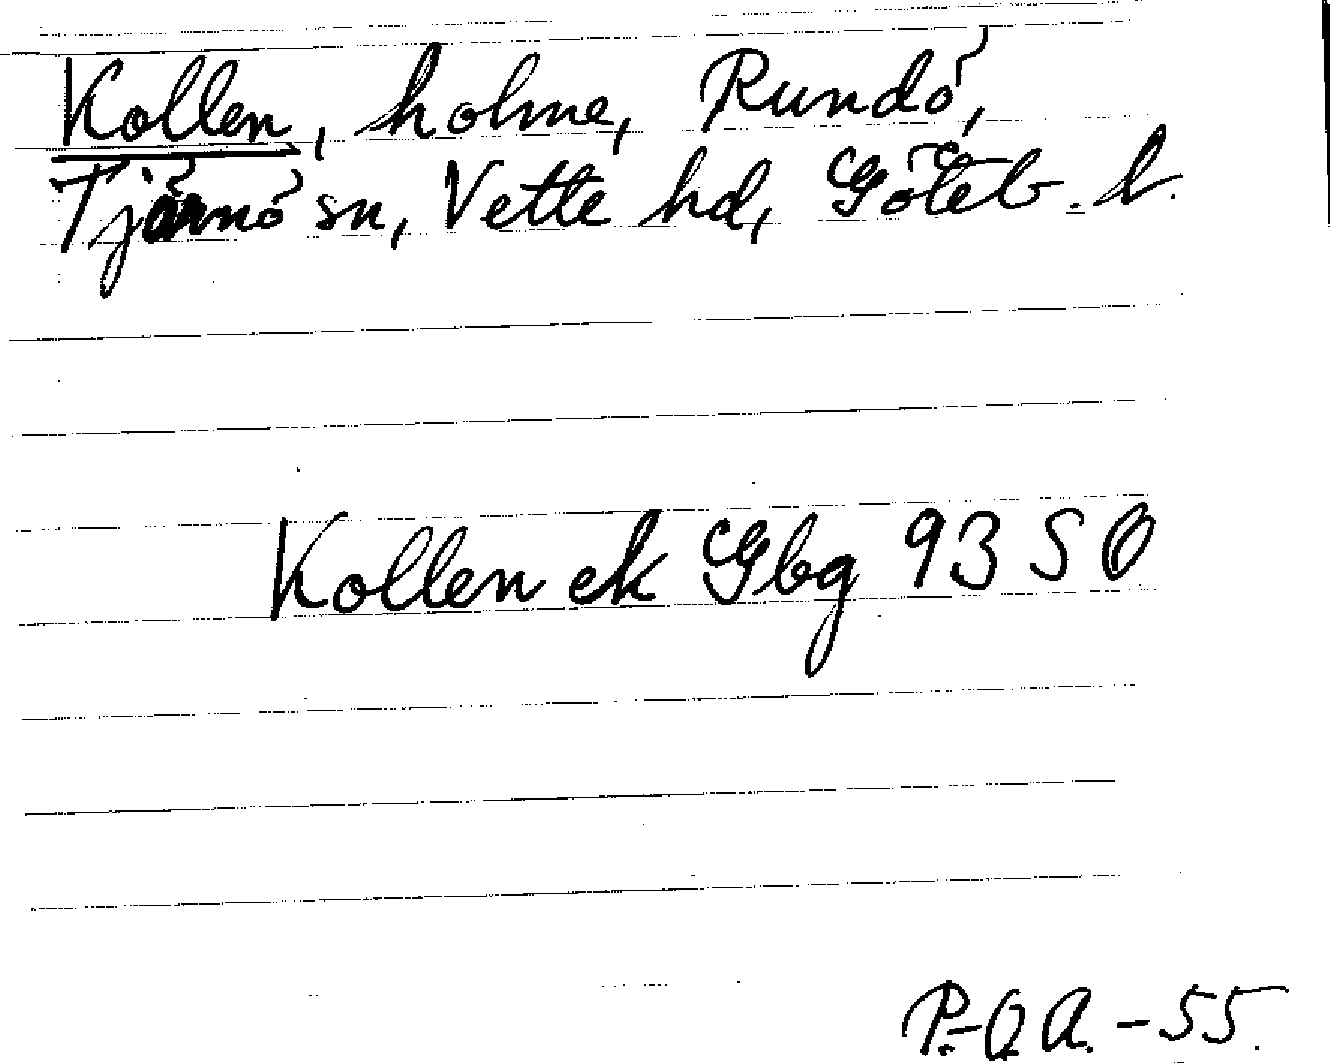 Kollen, holme, Rundö,
Tjärnö sn, Vette hd, Göteb. l.
Kollen ek Gbg 93 SO
P.-O. A. -55.